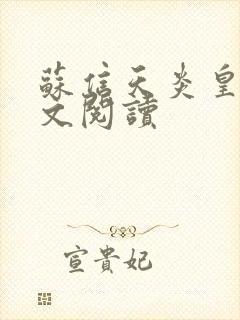 蘇信天炎皇
文閱讀
宣貴妃